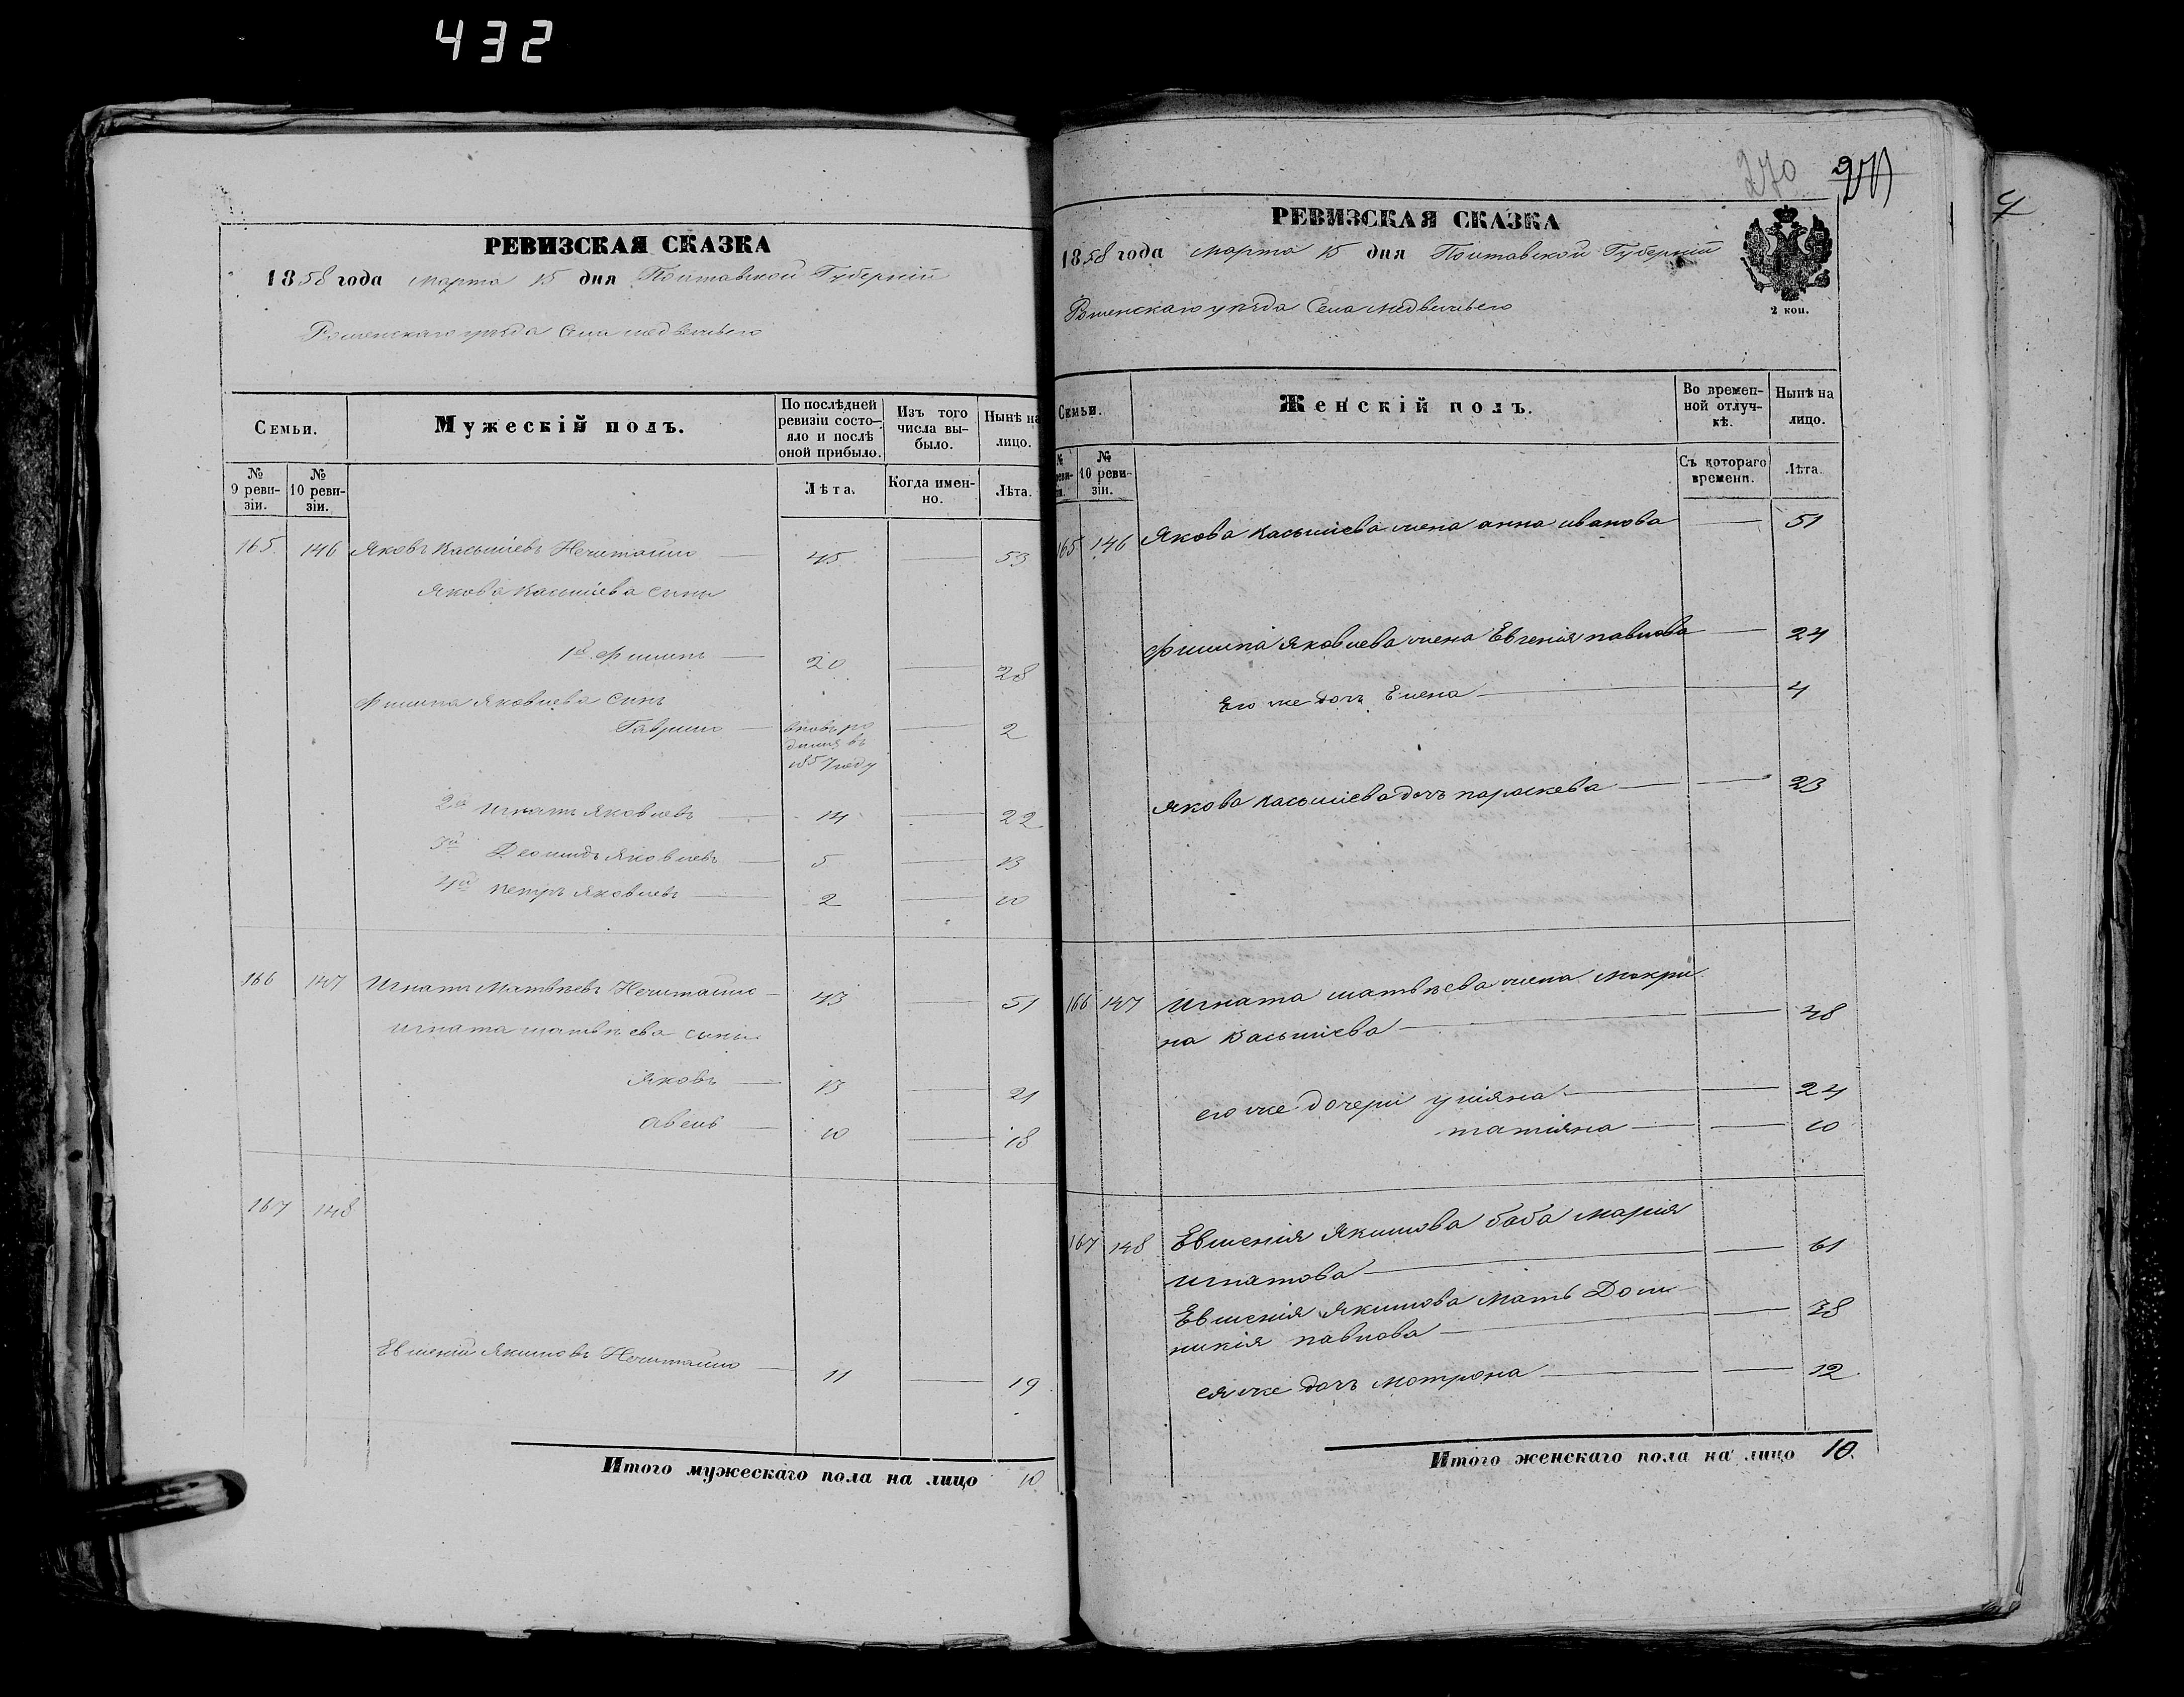 432
РЕВИЗСКАЯ СКАЗКА
1858 года марта 15 дня Полтавской Губерніи
Роменскаго уѣзда Села медвежьего
Семьи.
Мужескій полъ.
По послѣдней ревизіи состояло и послѣ оной прибыло.
Изъ того числа выбыло.
Нынѣ на лицо.
№ 9 ревизіи.
№ 10 ревизіи.
Лѣта.
Когда именно.
Лѣта.
165. 146 Яковъ Касьяніевъ Нечитайло — 45 — 53
Якова Касьяніева сины
1й Филипъ — 20 — 28
Филипа Яковлева синъ
Гаврило — вновь ро — 2
дился въ
1857 году
2й Игнатъ Яковлевъ — 14 — 22
3й Леонидъ Яковлевъ — 5 — 13
4й петръ Яковлевъ — 2 — 10
166 147 Игнатъ Матвѣевъ Нечитайло — 43 — 51
Игната матвѣева сины
Яковъ — 13 — 21
авель — 10 — 18
167 148
Евмений Якимовъ Нечитайло — 11 — 19
Итого мужескаго пола на лицо 10
270 271
РЕВИЗСКАЯ СКАЗКА
1858 года марта 15 дня Полтавской Губерніи
Роменскаго уѣзда Села медвежьего
2 коп.
Семьи.
Женскій полъ.
Во временной отлучкѣ.
Нынѣ на лицо.
№ 10 ревизіи.
Съ котораго времени.
Лѣта.
165 146 Якова Касьяніева жена анна иванова — 51
Филипа Яковлева жена Евгенія павлова — 24
Его же дочь Елена — 4
Якова Касьяніева дочь параскева — 23
166 147 Игната матвѣева жена Макри
на Касьяніева — 48
его же дочери уліяна — 24
татіяна — 10
167 148 Евменія Якимова баба Марія
игнатова — 61
Евменія Якимова мать Дом
никія павлова — 38
ея же дочь мотрона — 12
Итого женскаго пола на лицо 10.